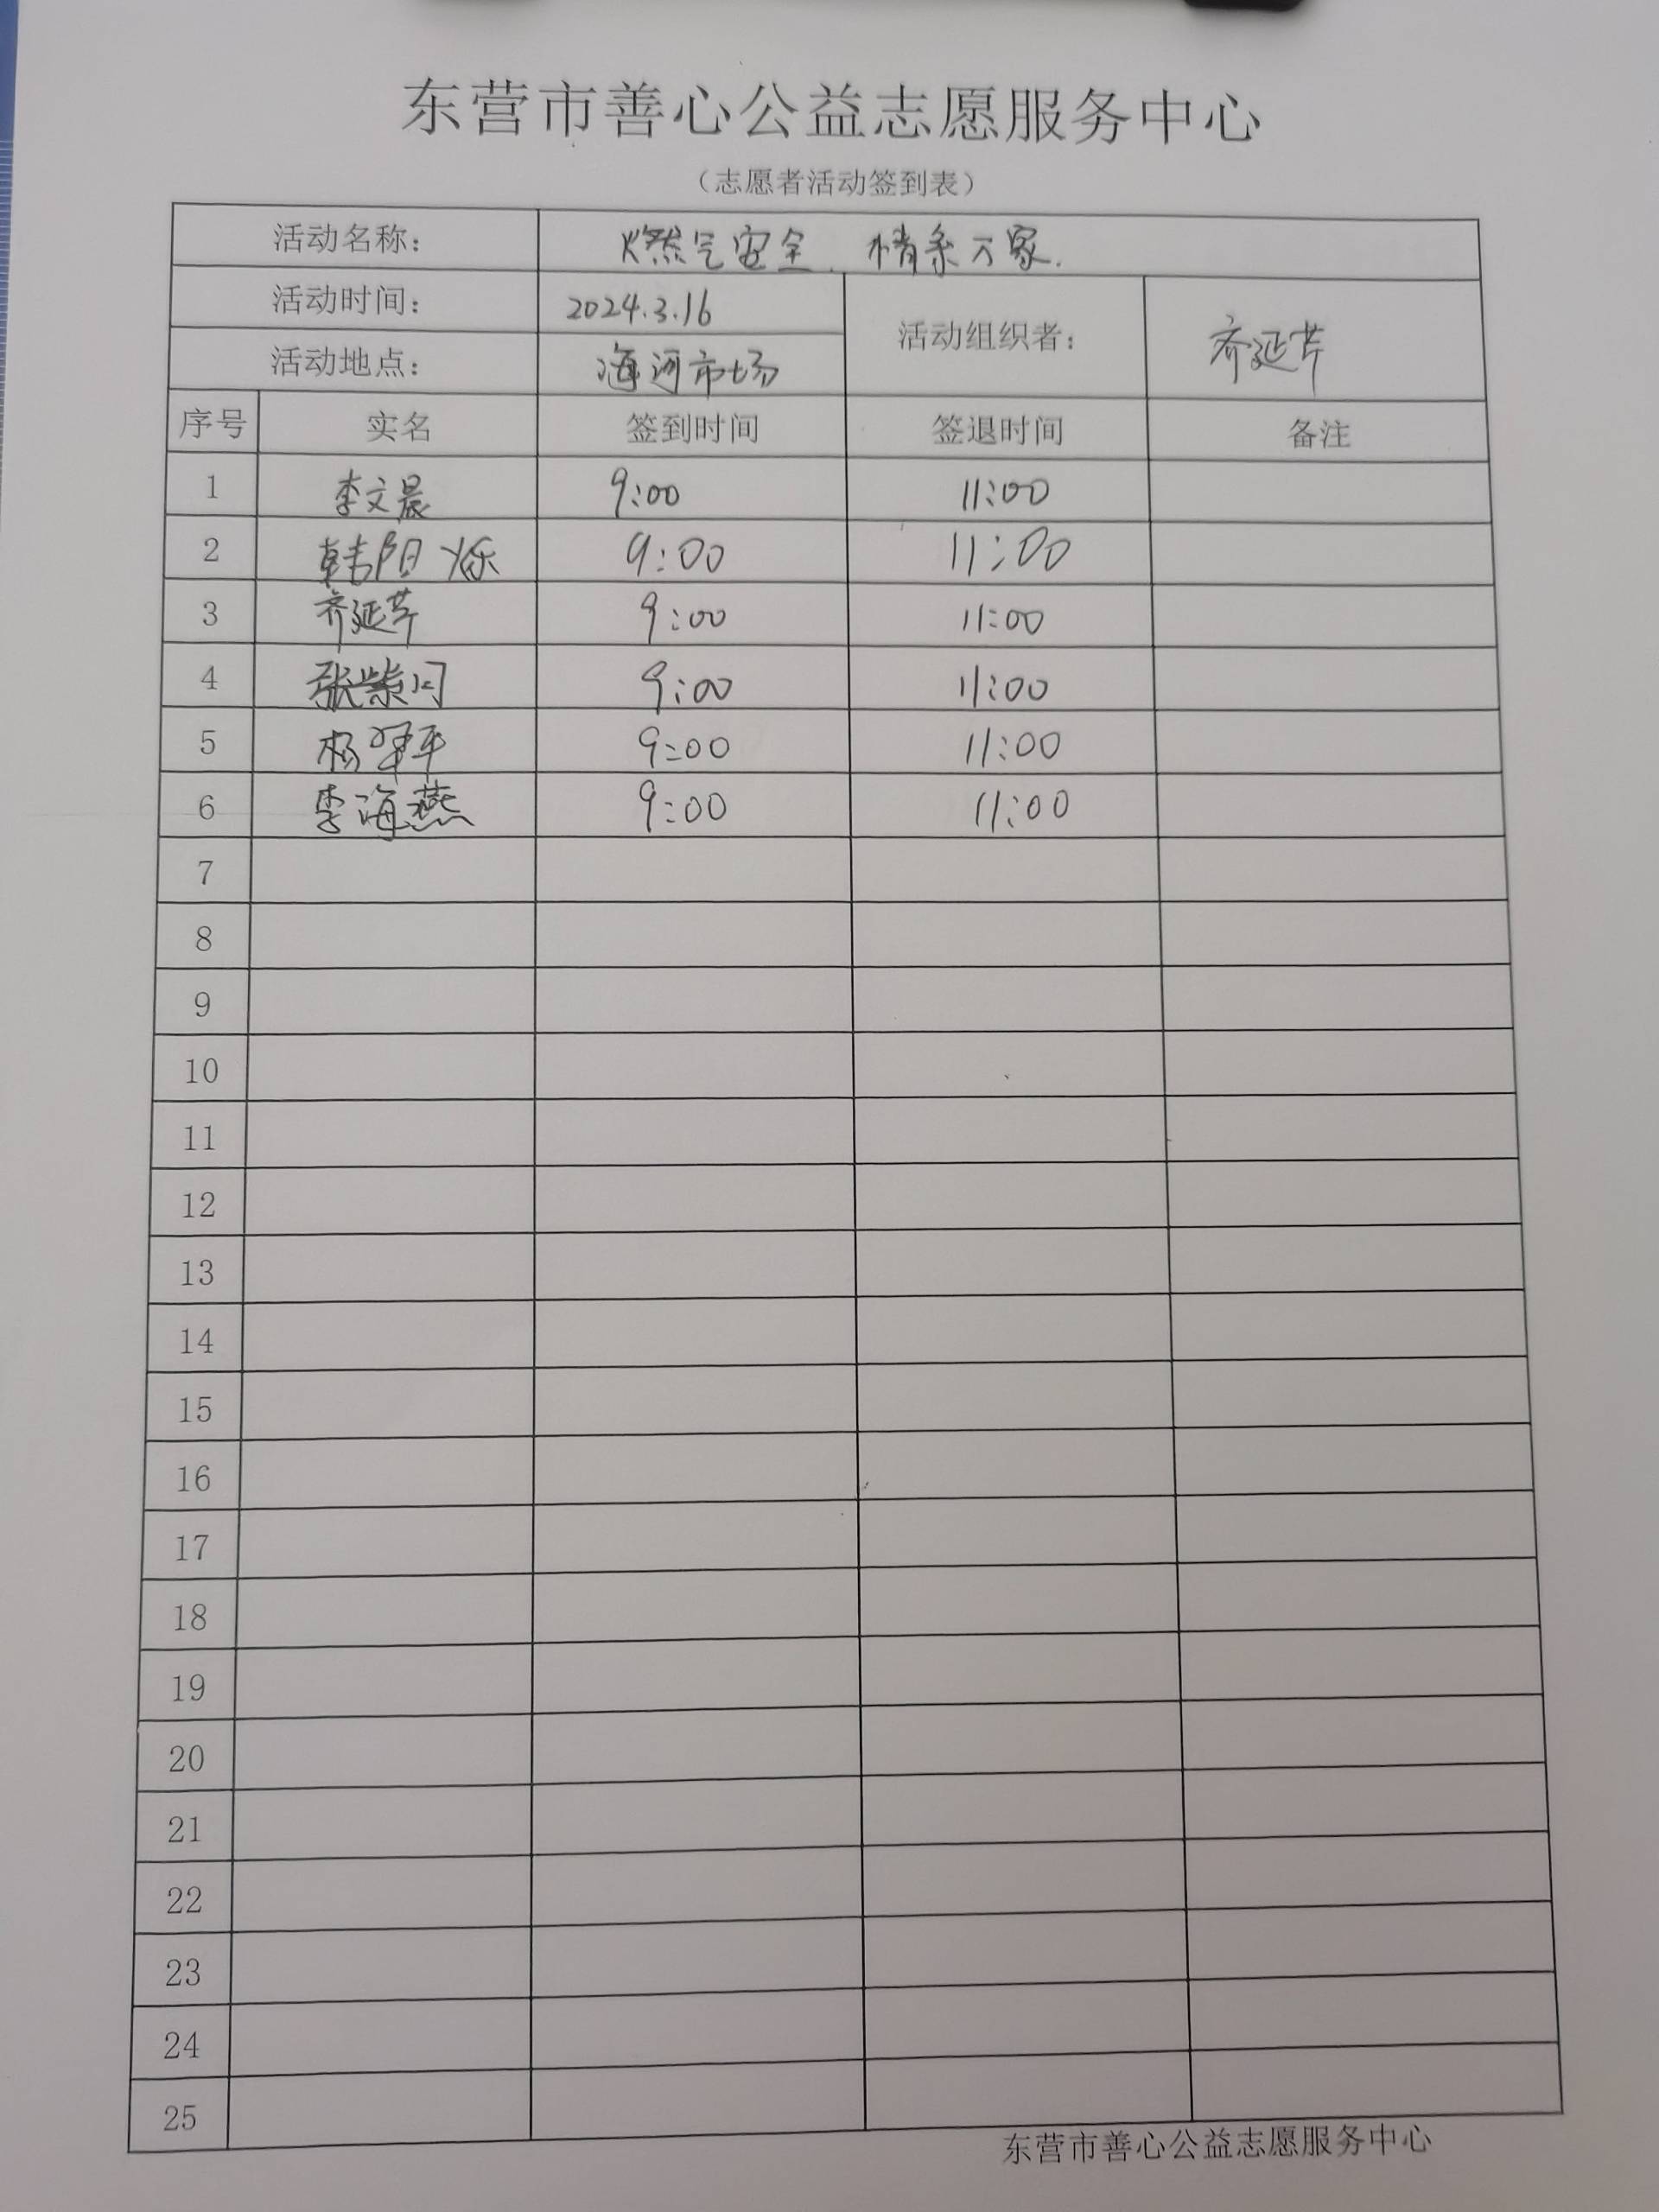 东营市善心公益志愿服务中心
（志愿者活动签到表）
活动名称： 燃气安全 情系万家.
活动时间： 2024.3.16 活动组织者： 齐延芹
活动地点： 海河市场
序号 实名 签到时间 签退时间 备注
1 李文晨 9:00 11:00
2 韩阳烁 9:00 11:00
3 齐延芹 9:00 11:00
4 张紫闩 9:00 11:00
5 9:00 11:00
6 李海燕 9:00 11:00
7
8
9
10
11
12
13
14
15
16
17
18
19
20
21
22
23
24
25
东营市善心公益志愿服务中心